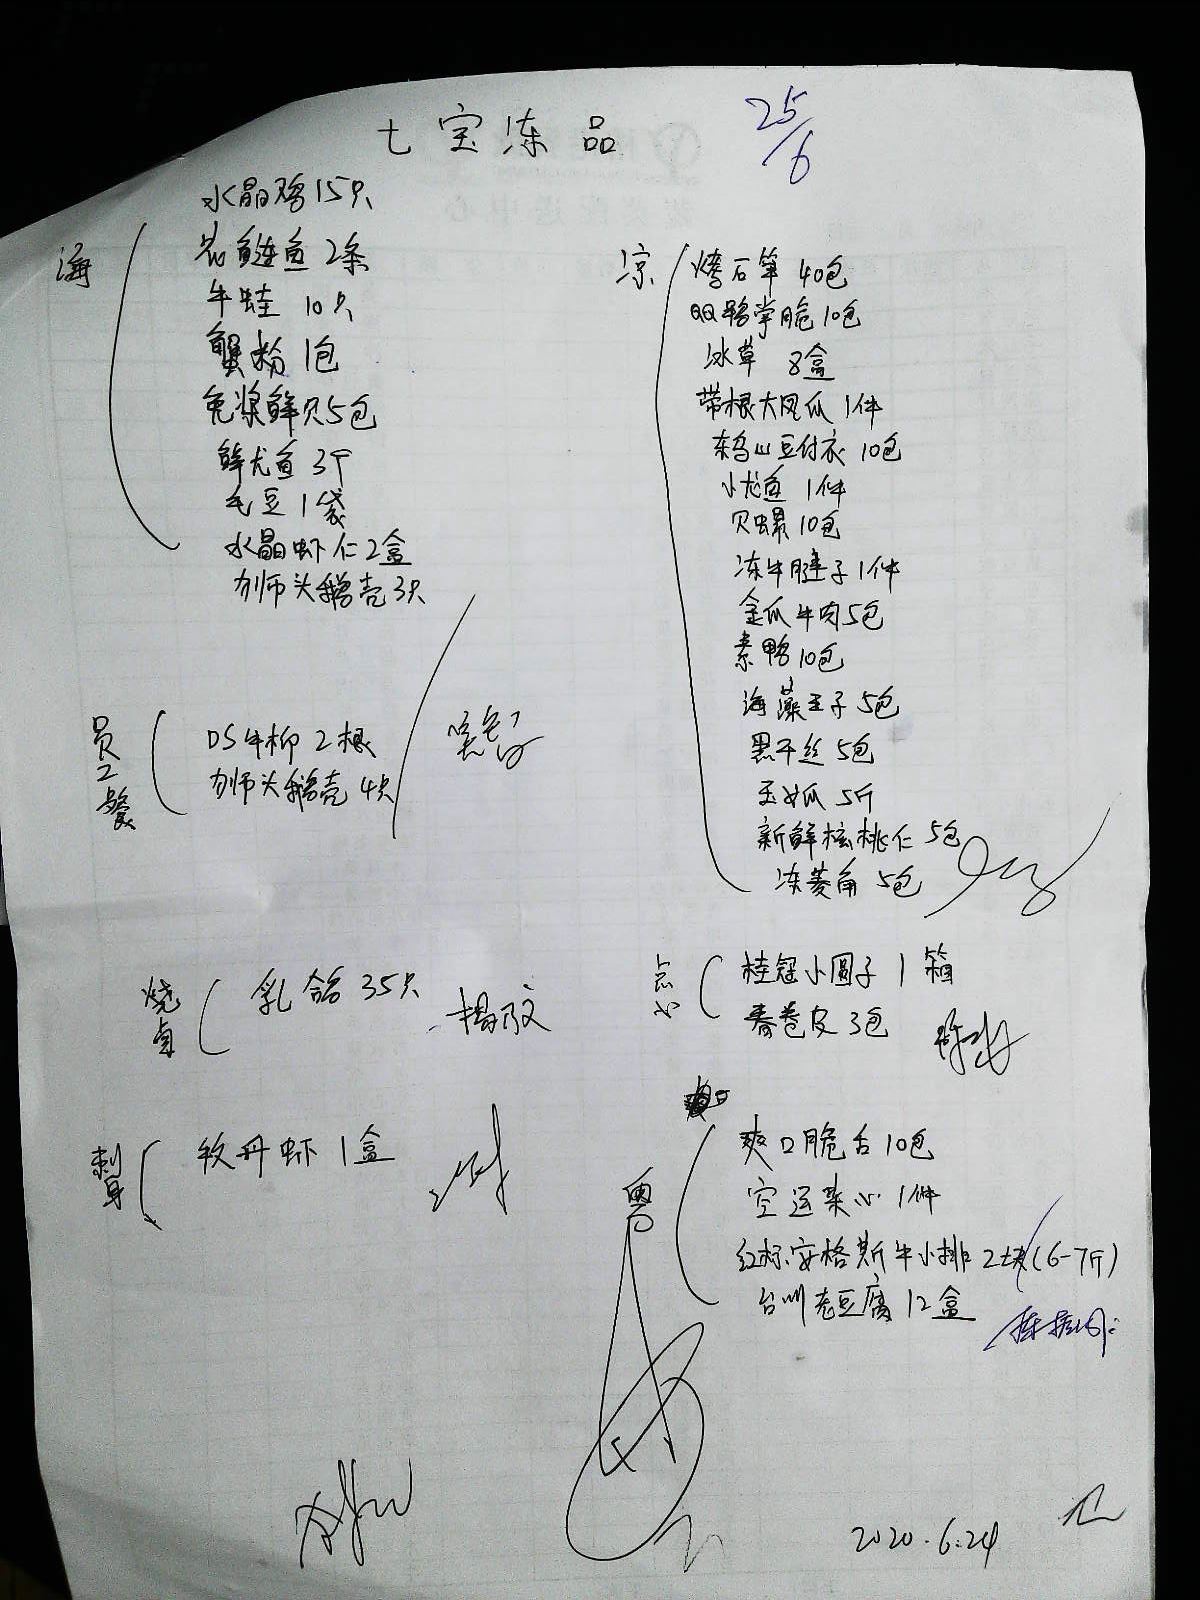 七宝冻品
25/6
海
水晶鸡15只
花鲢鱼2条
牛蛙10只
蟹粉1包
免浆鲜贝5包
鲜尤鱼3个
毛豆1袋
水晶虾仁2盒
狮头鹅壳3只
员工餐
DS牛柳2根
狮头鹅壳4只
烧卤
乳鸽35只
刺身
牧丹虾1盒
凉
烤石笋40包
QQ鸭掌脆10包
冰草 8盒
带根大凤爪1件
东乌山豆付衣10包
小尤鱼1件
贝螺10包
冻牛腱子1件
金瓜牛肉5包
素鸭10包
海藻王子5包
黑干丝5包
玉女瓜5斤
新鲜核桃仁5包
冻菱角5包
点心
桂冠小圆子1箱
春卷皮3包
粤
爽口脆舌10包
空运菜心1件
红标安格斯牛小排2块(6-7斤)
台州老豆腐12盒
2020.6.24